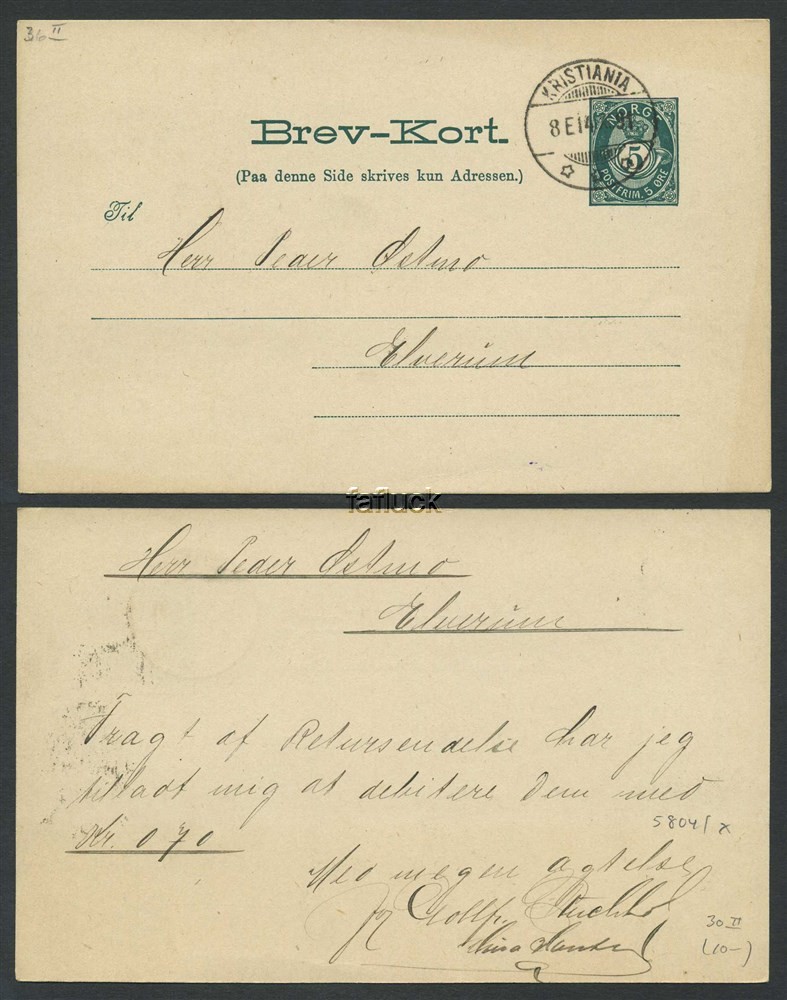 36 II
KRISTIANIA
8 E 14
NORGE
5
POSTFRIM. 5 ØRE
Brev-Kort.
(Paa denne Side skrives kun Adressen.)
Til
Herr Peder Østmo
Elverum
fafluck
Herr Peder Østmo
Elverum
Fragt af Retursendelse har jeg
tilladt mig at debitere Dem med
Kr. 0 70
5804/ x
Med megen agtelse
30 II
(10-)